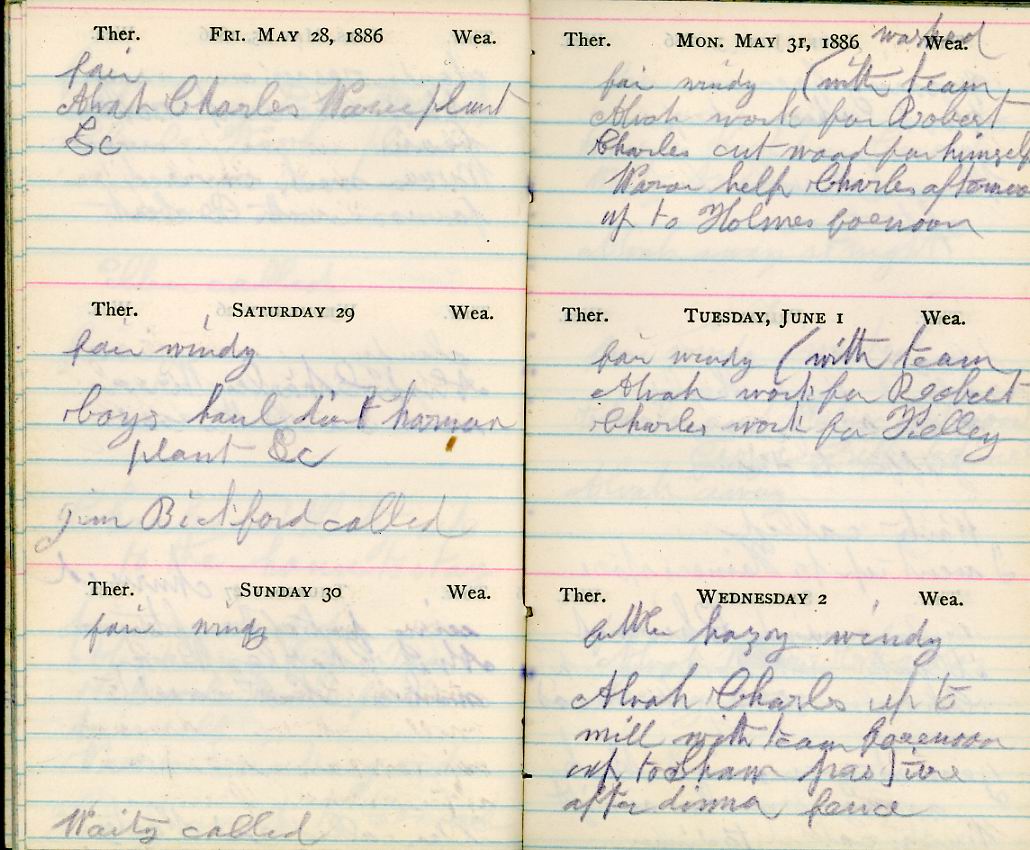 Ther. FRI. MAY 28, 1886 Wea.
fair
Alvah Charles Warren plant
&c
Ther. SATURDAY 29 Wea.
fair windy
boys haul dirt harrow
plant &c
Jim Bickford called
Ther. SUNDAY 30 Wea.
fair windy
Waity called
Ther. MON. MAY 31, 1886 Wea.
washed
fair windy (with team
Alvah work for Robert
Charles cut wood for himself
help Charles afternoon
up to Holmes forenoon
Ther. TUESDAY, JUNE 1 Wea.
fair windy (with team
Alvah work for Robert
Charles work for Kelley
Ther. WEDNESDAY 2 Wea.
hazy windy
Alvah Charles up to
mill with team forenoon
up to Shaw pasture
after dinner fence